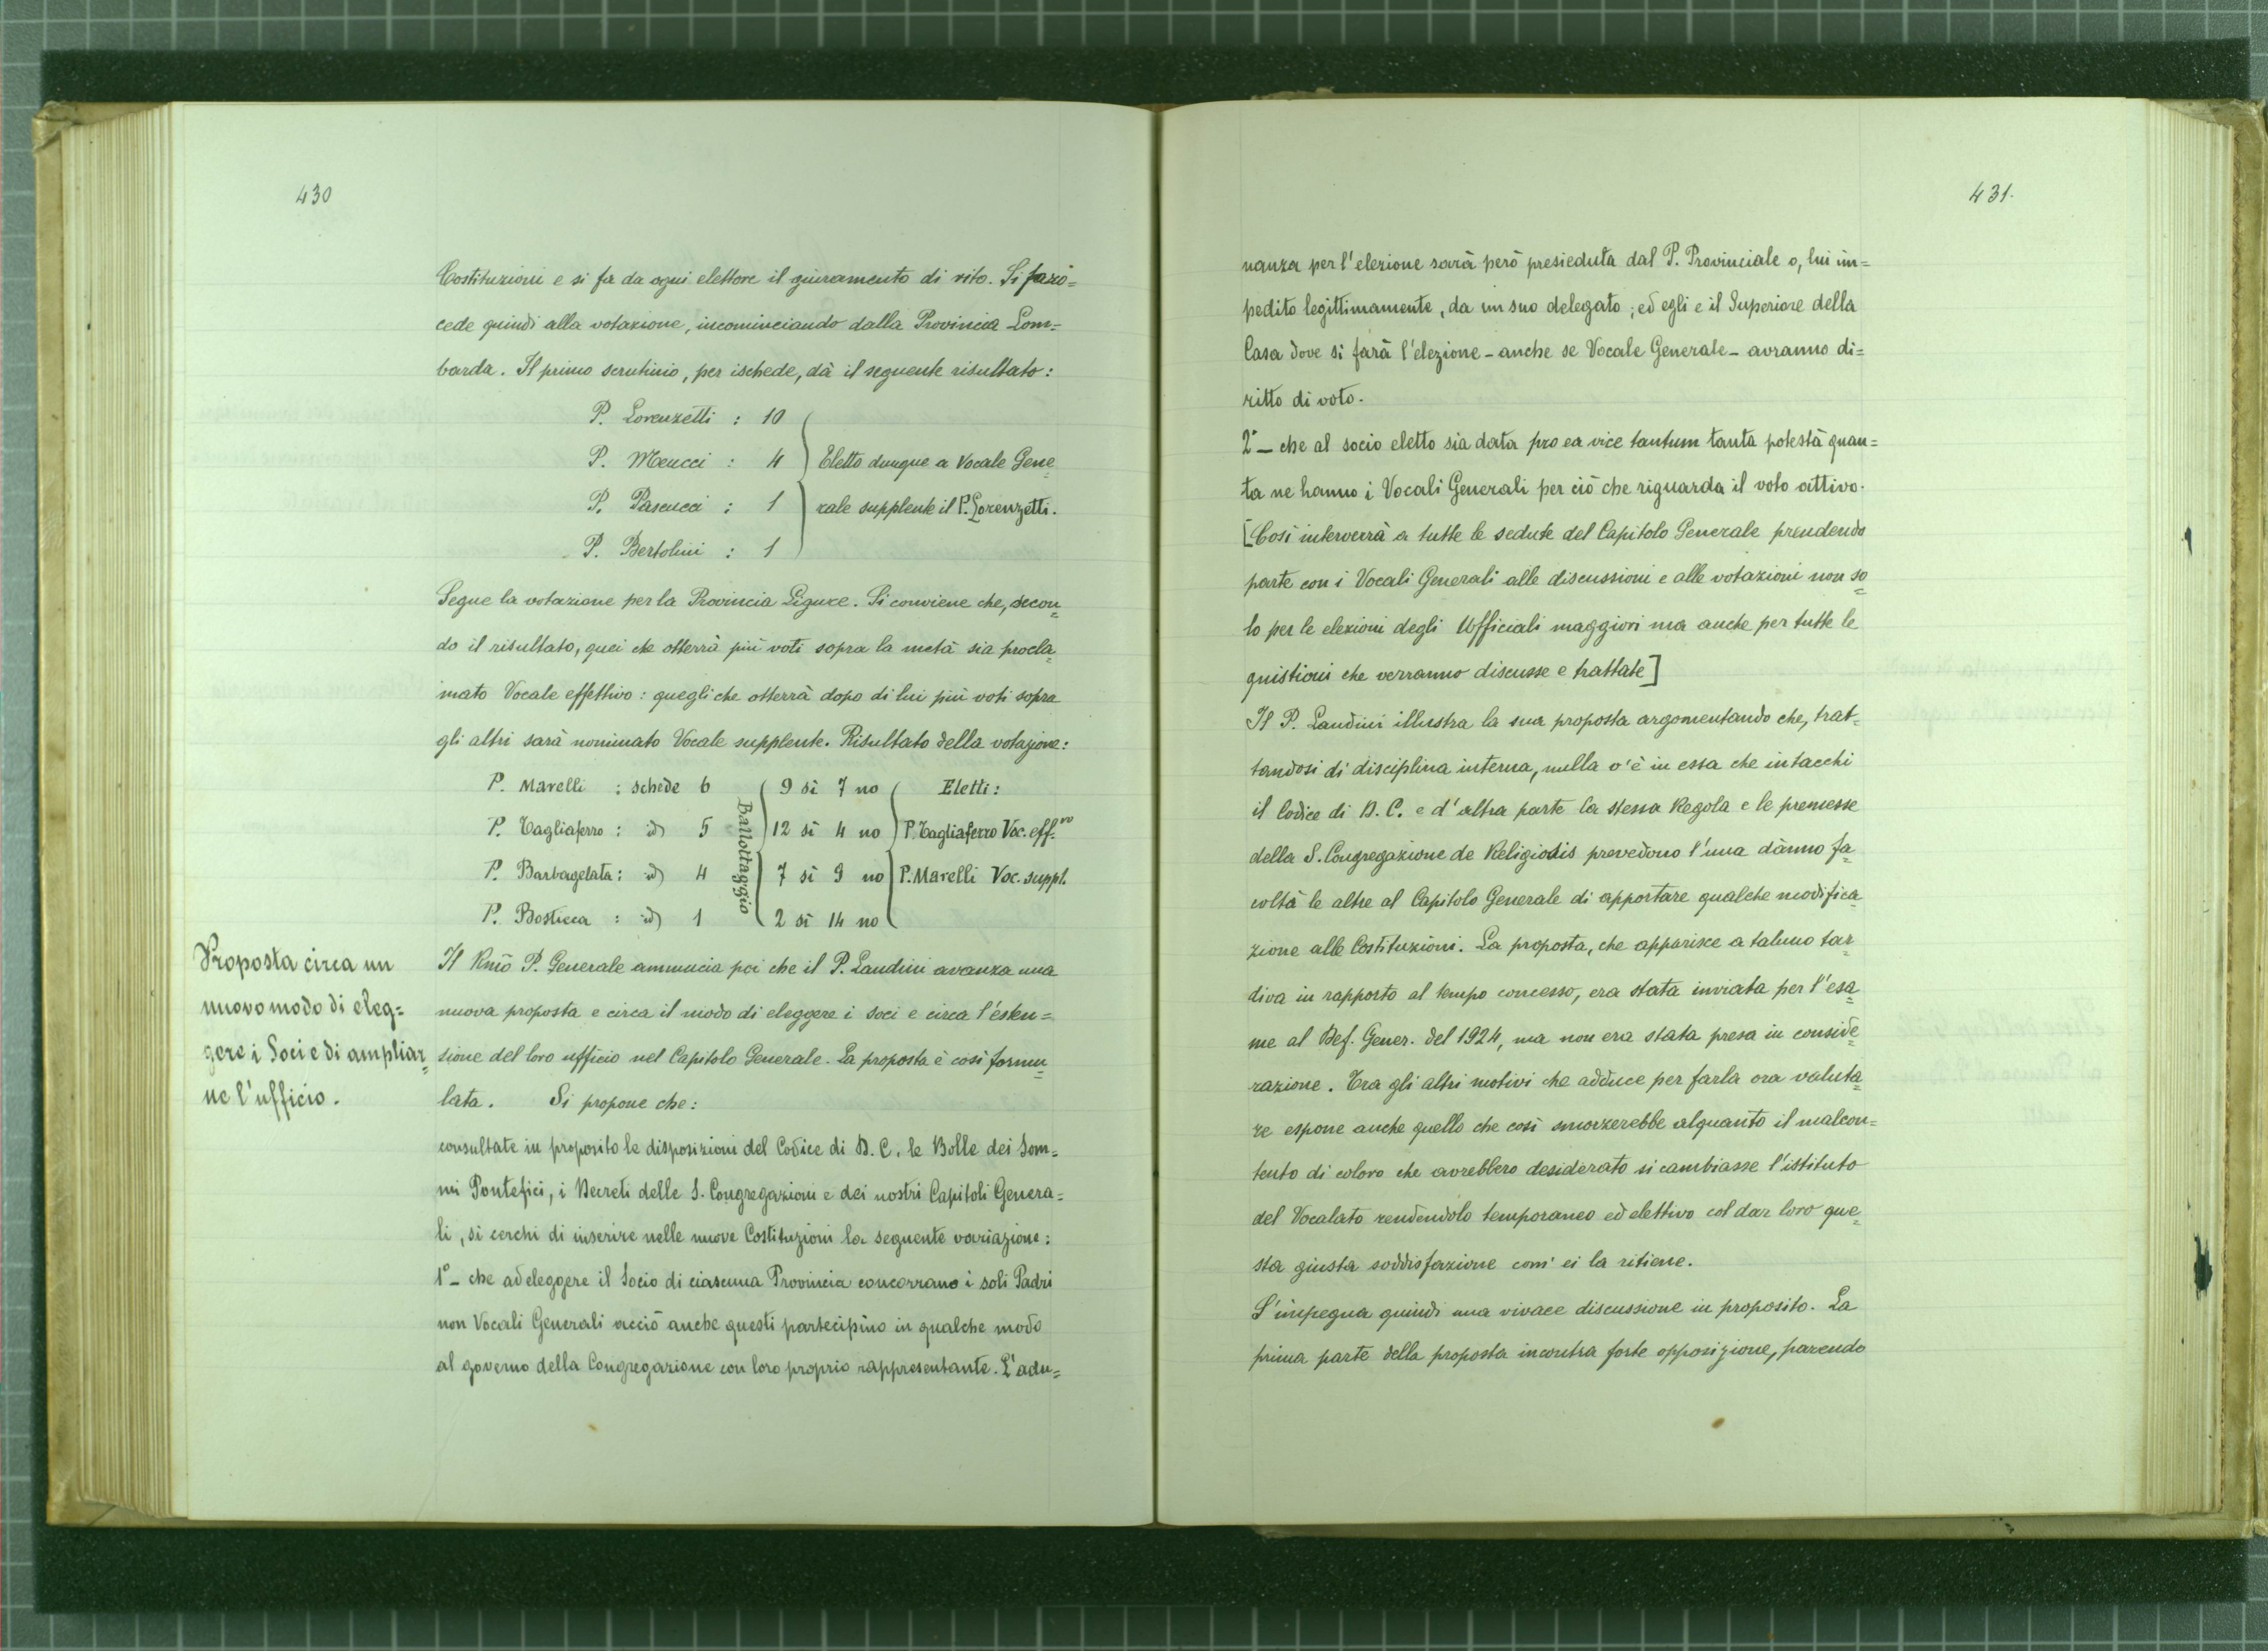 430
Costituzioni e si fa da ogni elettore il giuramento di rito. Si proce=
cede quindi alla votazione, incominciando dalla Provincia Lom=
barda. Il primo scrutinio, per ischede, dà il seguente risultato:
P. Lorenzetti : 10
P. Meucci : 4 Eletto dunque a Vocale Gene=
P. Pascucci : 1 rale supplente il P. Lorenzetti.
P. Bertolini : 1
Segue la votazione per la Provincia Ligure. Si conviene che, secon=
do il risultato, quei che otterrà più voti sopra la metà sia procla=
mato Vocale effettivo: quegli che otterrà dopo di lui più voti sopra
gli altri sarà nominato Vocale supplente. Risultato della votazione:
P. Marelli : schede 6 9 sì 7 no Eletti:
P. Tagliaferro : id 5 12 sì 4 no P. Tagliaferro Voc. eff.vo
P. Barbagelata : id 4 7 sì 9 no P. Marelli Voc. suppl.
P. Bosticca : id 1 2 sì 14 no
Ballottaggio
Proposta circa un
nuovo modo di eleg=
gere i Soci e di ampliar=
ne l'ufficio.
Il Rmo P. Generale annuncia poi che il P. Landini avanza una
nuova proposta e circa il modo di eleggere i soci e circa l'esten=
sione del loro ufficio nel Capitolo Generale. La proposta è così formu=
lata. Si propone che:
consultate in proposito le disposizioni del Codice di D. C. le Bolle dei Som=
mi Pontefici, i Decreti delle S. Congregazioni e dei nostri Capitoli Genera=
li, si cerchi di inserire nelle nuove Costituzioni la seguente variazione:
1° - che ad eleggere il Socio di ciascuna Provincia concorrano i soli Padri
non Vocali Generali acciò anche questi partecipino in qualche modo
al governo della Congregazione con loro proprio rappresentante. L'adu=
431.
nanza per l'elezione sarà però presieduta dal P. Provinciale o, lui im=
pedito legittimamente, da un suo delegato; ed egli e il Superiore della
Casa dove si farà l'elezione - anche se Vocale Generale - avranno di=
ritto di voto.
2° - che al socio eletto sia data pro ea vice tantum tanta potestà quan=
ta ne hanno i Vocali Generali per ciò che riguarda il voto attivo.
[Così interverrà a tutte le sedute del Capitolo Generale prendendo
parte con i Vocali Generali alle discussioni e alle votazioni non so=
lo per le elezioni degli Ufficiali maggiori ma anche per tutte le
quistioni che verranno discusse e trattate]
Il P. Landini illustra la sua proposta argomentando che, trat=
tandosi di disciplina interna, nulla v'è in essa che intacchi
il Codice di D. C. e d'altra parte la stessa Regola e le premesse
della S. Congregazione de Religiosis prevedono l'una dànno fa=
coltà le altre al Capitolo Generale di apportare qualche modifica=
zione alle Costituzioni. La proposta, che apparisce a taluno tar=
diva in rapporto al tempo concesso, era stata inviata per l'esa=
me al Def. Gener. del 1924, ma non era stata presa in conside=
razione. Tra gli altri motivi che adduce per farla ora valuta=
re espone anche quello che così smorzerebbe alquanto il malcon=
tento di coloro che avrebbero desiderato si cambiasse l'istituto
del Vocalato rendendolo temporaneo ed elettivo col dar loro que=
sta giusta soddisfazione com' ei la ritiene.
S'impegna quindi una vivace discussione in proposito. La
prima parte della proposta incontra forte opposizione, parendo